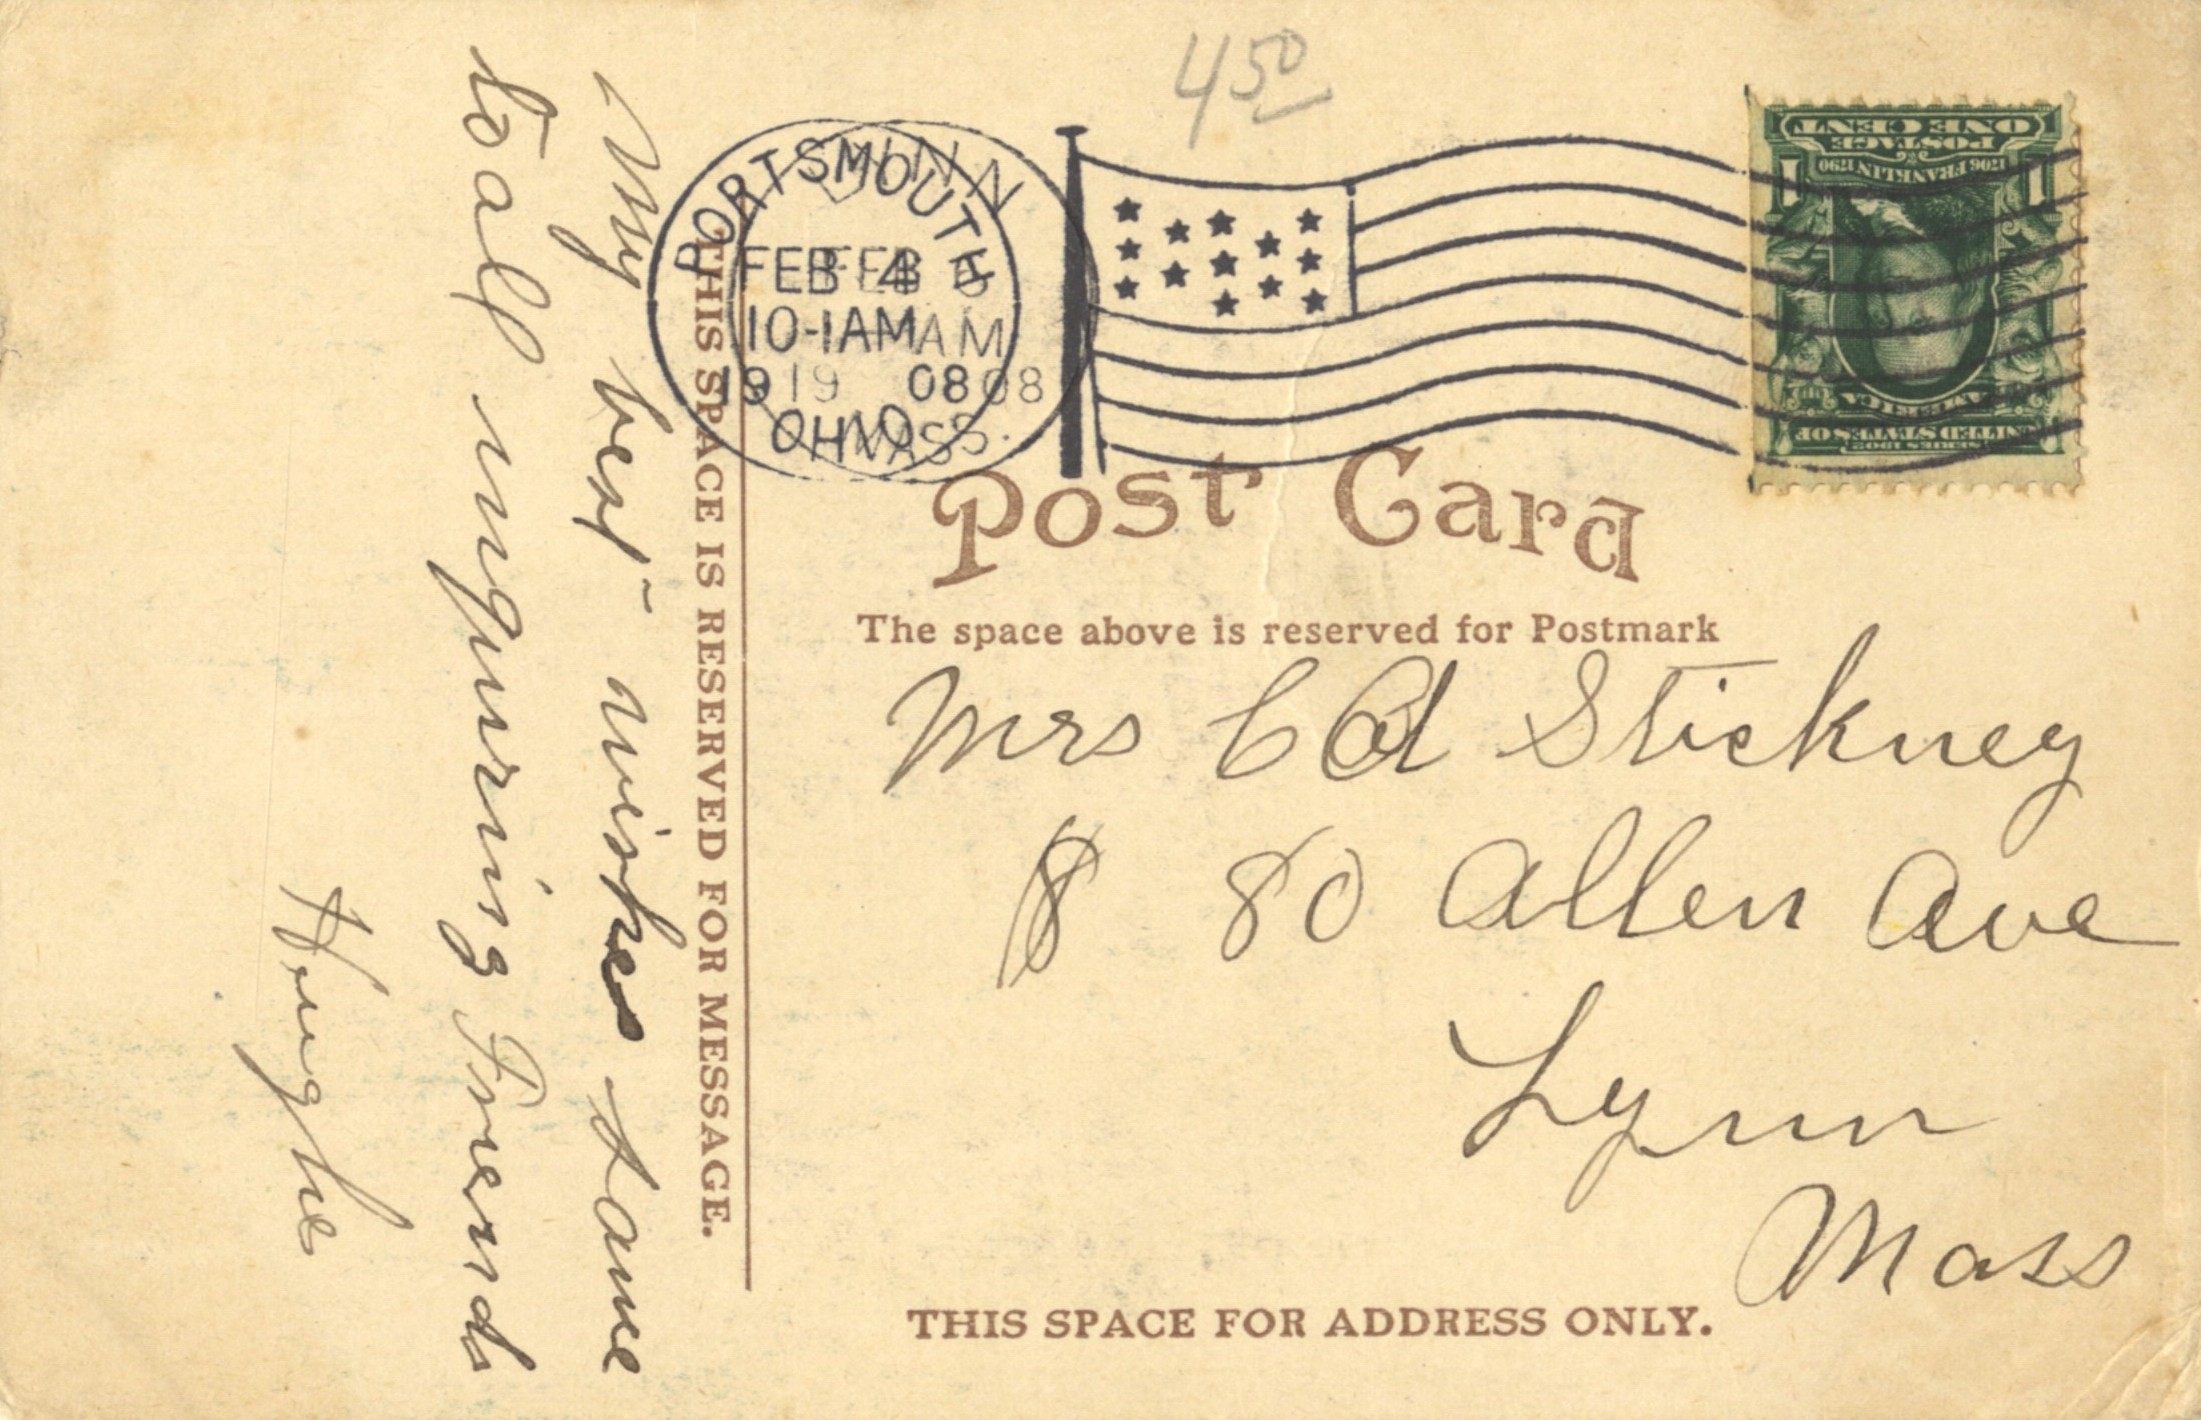 My best wishes & same
to all inquiring Friends
Hughe
THIS SPACE IS RESERVED FOR MESSAGE.
4 50
PORTSMOUTH
FEB 4
10-1AM
19 08
OHIO
LYNN
FEB
AM
19 08
MASS.
ONE CENT
POSTAGE
1706 FRANKLIN 1790
1 1
SERIES 1902
UNITED STATES OF
AMERICA
Post Card
The space above is reserved for Postmark
Mrs C A Stickney
8 80 Allen Ave
Lynn
Mass
THIS SPACE FOR ADDRESS ONLY.